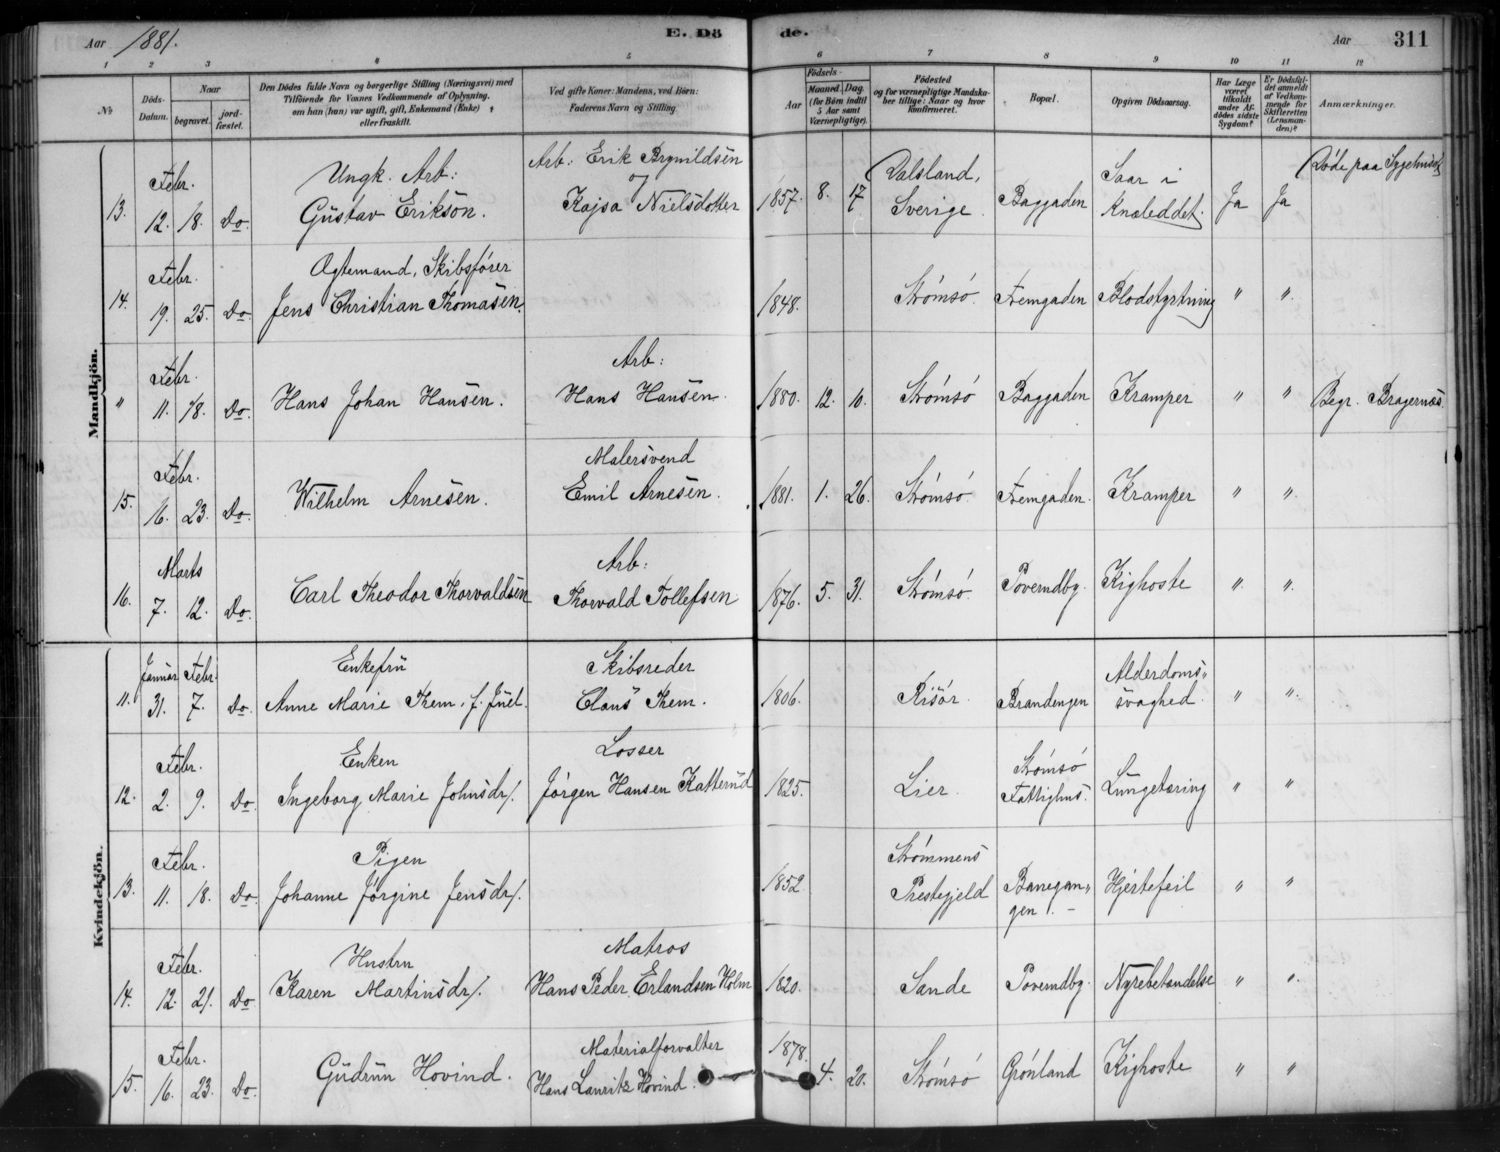 Aar 1881. E. Dö
de. Aar 311
1 2 3 4 5 6 7 8 9 10 11 12
№
Döds-Datum.
Naar
begravet.
jord-fæstet.
Den Dödes fulde Navn og borgerlige Stilling (Næringsvei) med
Tilföiende for Voxnes Vedkommende af Oplysning,
om han (hun) var ugift, gift, Enkemand (Enke)
eller fraskilt.
Ved gifte Koner: Mandens, ved Börn:
Faderens Navn og Stilling.
Födsels-
Aar
Maaned. Dag.
(for Börn indtil
5 Aar samt
Værnepligtige).
Födested
og for værnepligtige Mandska-
ber tillige: Naar og hvor
Konfirmeret.
Bopæl.
Opgiven Dödsaarsag.
Har Læge
været
tilkaldt
under Af-
dödes sidste
Sygdom?
Er Dödsfal-
det anmeldt
af Vedkom-
mende for
Skifteretten
(Lensman-
den)?
Anmærkninger.
Mandkjön.
Febr. Ungk. Arb: Arb: Erik Brynildsen Dalsland, Saar i Døde paa Sygehuset
13. 12. 18. Do. Gustav Erikson. og Kajsa Nielsdotter 1857. 8. 17 Sverige. Baggaden Knæleddet. Ja Ja
Febr. Ægtemand, Skibsfører
14. 19. 25. Do. Jens Christian Thomasen. 1848. Strømsø. Fremgaden Blodstyrtning " "
Febr. Arb:
" 11. 18. Do. Hans Johan Hansen. Hans Hansen. 1880. 12. 10. Strømsø Baggaden Kramper " " Begr. Bragernæs.
Febr. Malersvend
15. 16. 23. Do. Wilhelm Arnesen. Emil Arnesen. 1881. 1. 26. Strømsø Fremgaden. Kramper " "
Marts Arb:
16. 7. 12. Do. Carl Theodor Thorvaldsen Thorvald Tollefsen 1876. 5. 31. Strømsø. Poverudby. Kighoste " "
Kvindekjön.
Januar Febr. Enkefru Skibsreder Alderdoms-
11. 31. 7. Do. Anne Marie Kem, f. Juel. Claus Kem. 1806. Risør. Brandengen svaghed. " "
Febr. Enken Losser Strømsø
12. 2. 9. Do. Ingeborg Marie Johnsdr/. Jørgen Hansen Katterud 1825. Lier. Fattighus. Lungetæring " "
Febr. Pigen Strømmens
13. 11. 18. Do. Johanne Jørgine Jensdr/. 1852. Prestegjeld Banegan-
gen. Hjertefeil " "
Febr. Hustru Matros
14. 12. 21. Do Karen Martinsdr/. Hans Peder Erlandsen Holm 1820. Sande Poverudby. Nyrebetændelse " "
Febr. Materialforvalter
15. 16. 23. Do. Gudrun Hovind. Hans Lauritz Hovind. 1878. 4. 20. Strømsø Grønland Kighoste " "